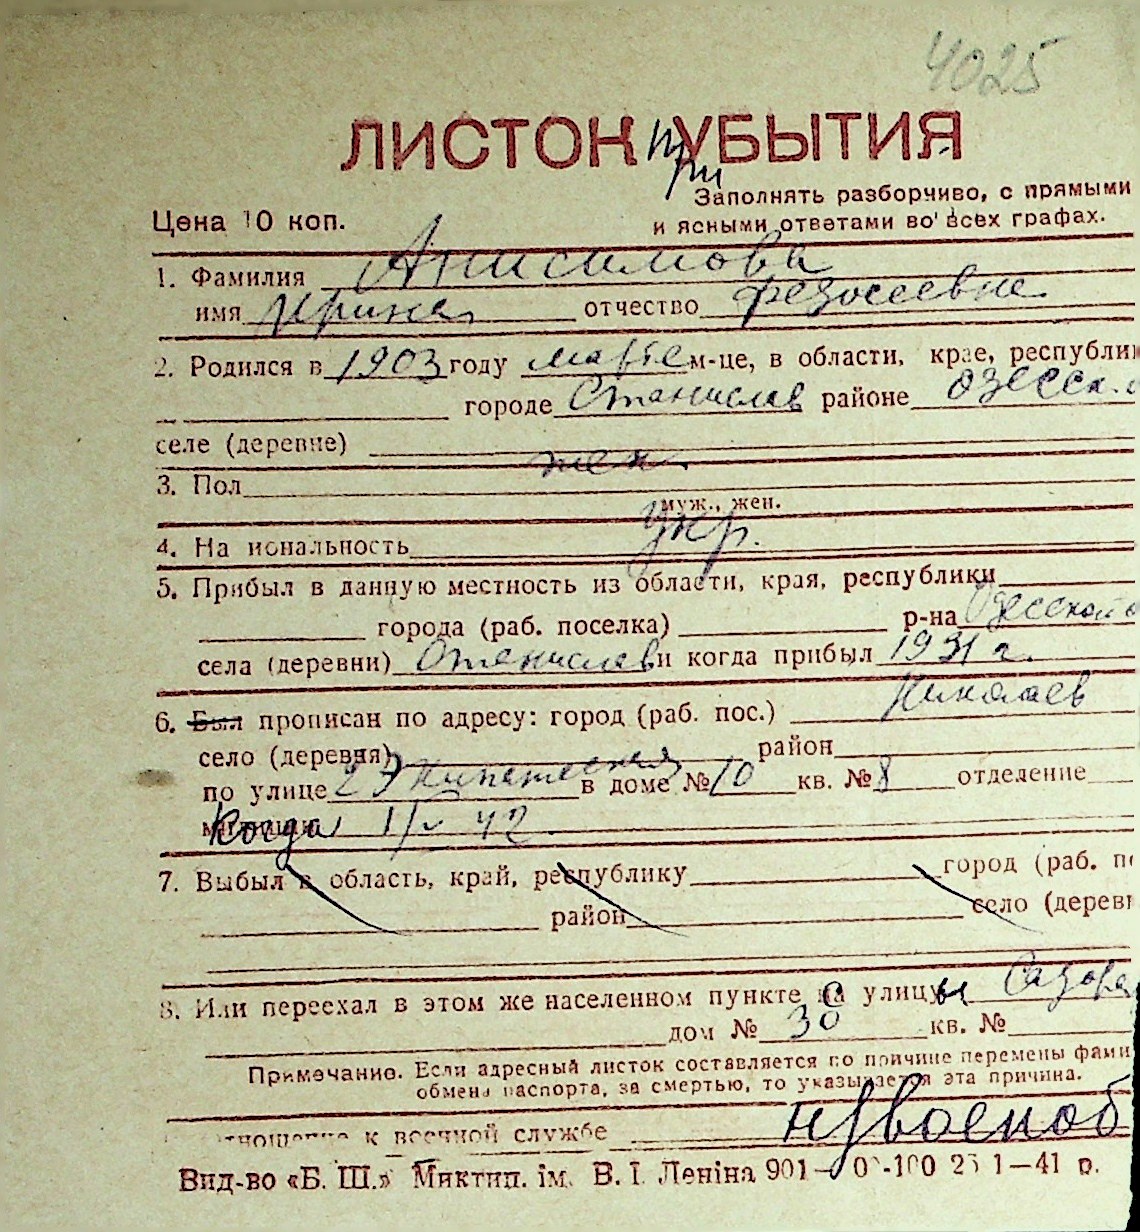 4025
ЛИСТОК при УБЫТИЯ
Цена 10 коп.
Заполнять разборчиво, с прямыми
и ясными ответами во всех графах.
1. Фамилия Анисимова
имя Ирина отчество Федосеевна
2. Родился в 1903 году марте м-це, в области, крае, республик
городе Станислав районе Одесск.
селе (деревне)
3. Пол жен.
муж., жен.
4. На иональность Укр.
5. Прибыл в данную местность из области, края, республики
города (раб. поселка) р-на Одесской о
села (деревни) Станислав и когда прибыл 1931 г.
6. Был прописан по адресу: город (раб. пос.) Николаев
село (деревня) район
по улице 2 Экипажеская в доме № 10 кв. № 8 отделение
Когда 1/V 42
7. Выбыл в область, край, республику город (раб. п
район село (дерев
8. Или переехал в этом же населенном пункте с улицы
дом № 30 кв. №
Примечание. Если адресный листок составляется по причине перемены фами
обмена паспорта, за смертью, то указывается эта причина.
тношение к военной службе н/военоб
Вид-во «Б. Ш.» Миктип. ім. В. І. Леніна 901— 1—41 р.